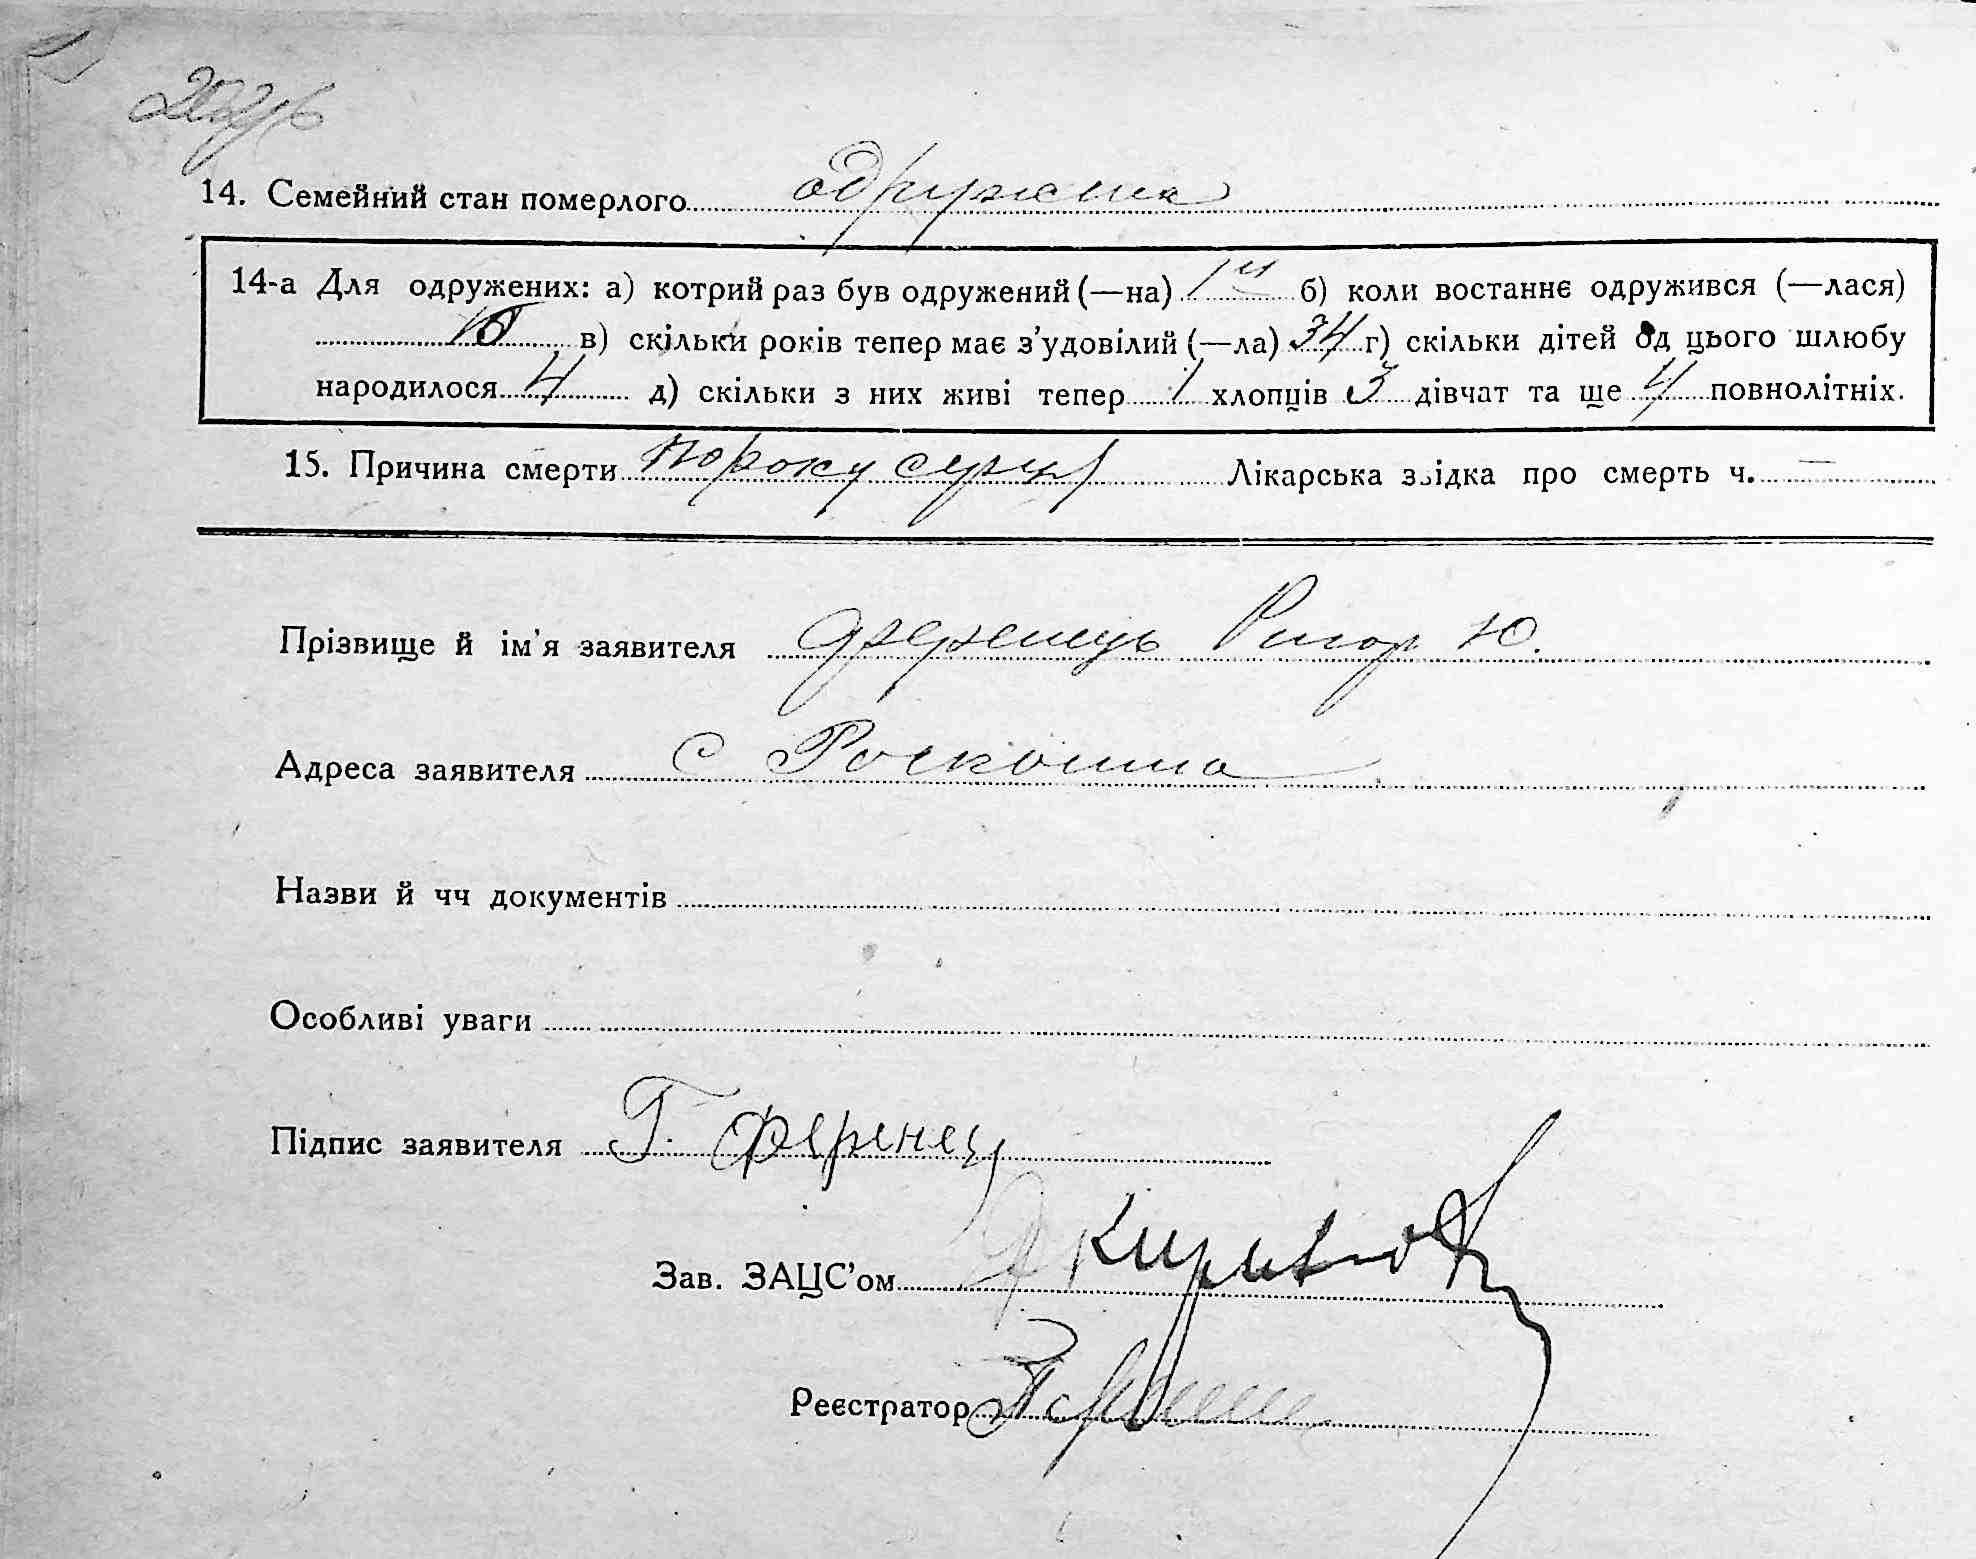 14. Семейний стан померлого одружена
14-а Для одружених: а) котрий раз був одружений (—на) 1й б) коли востаннє одружився (—лася)
в) скільки років тепер має з’удовілий (—ла) 34 г) скільки дітей од цього шлюбу
народилося 4 д) скільки з них живі тепер 1 хлопців 3 дівчат та ще 4 повнолітніх.
15. Причина смерти пороку серця Лікарська звідка про смерть ч. —
Прізвище й ім’я заявителя Ференець Ригор Ю.
Адреса заявителя с Роскошна
Назви й чч документів
Особливі уваги
Підпис заявителя Г. Ференец
Зав. ЗАЦС’ом
Реєстратор